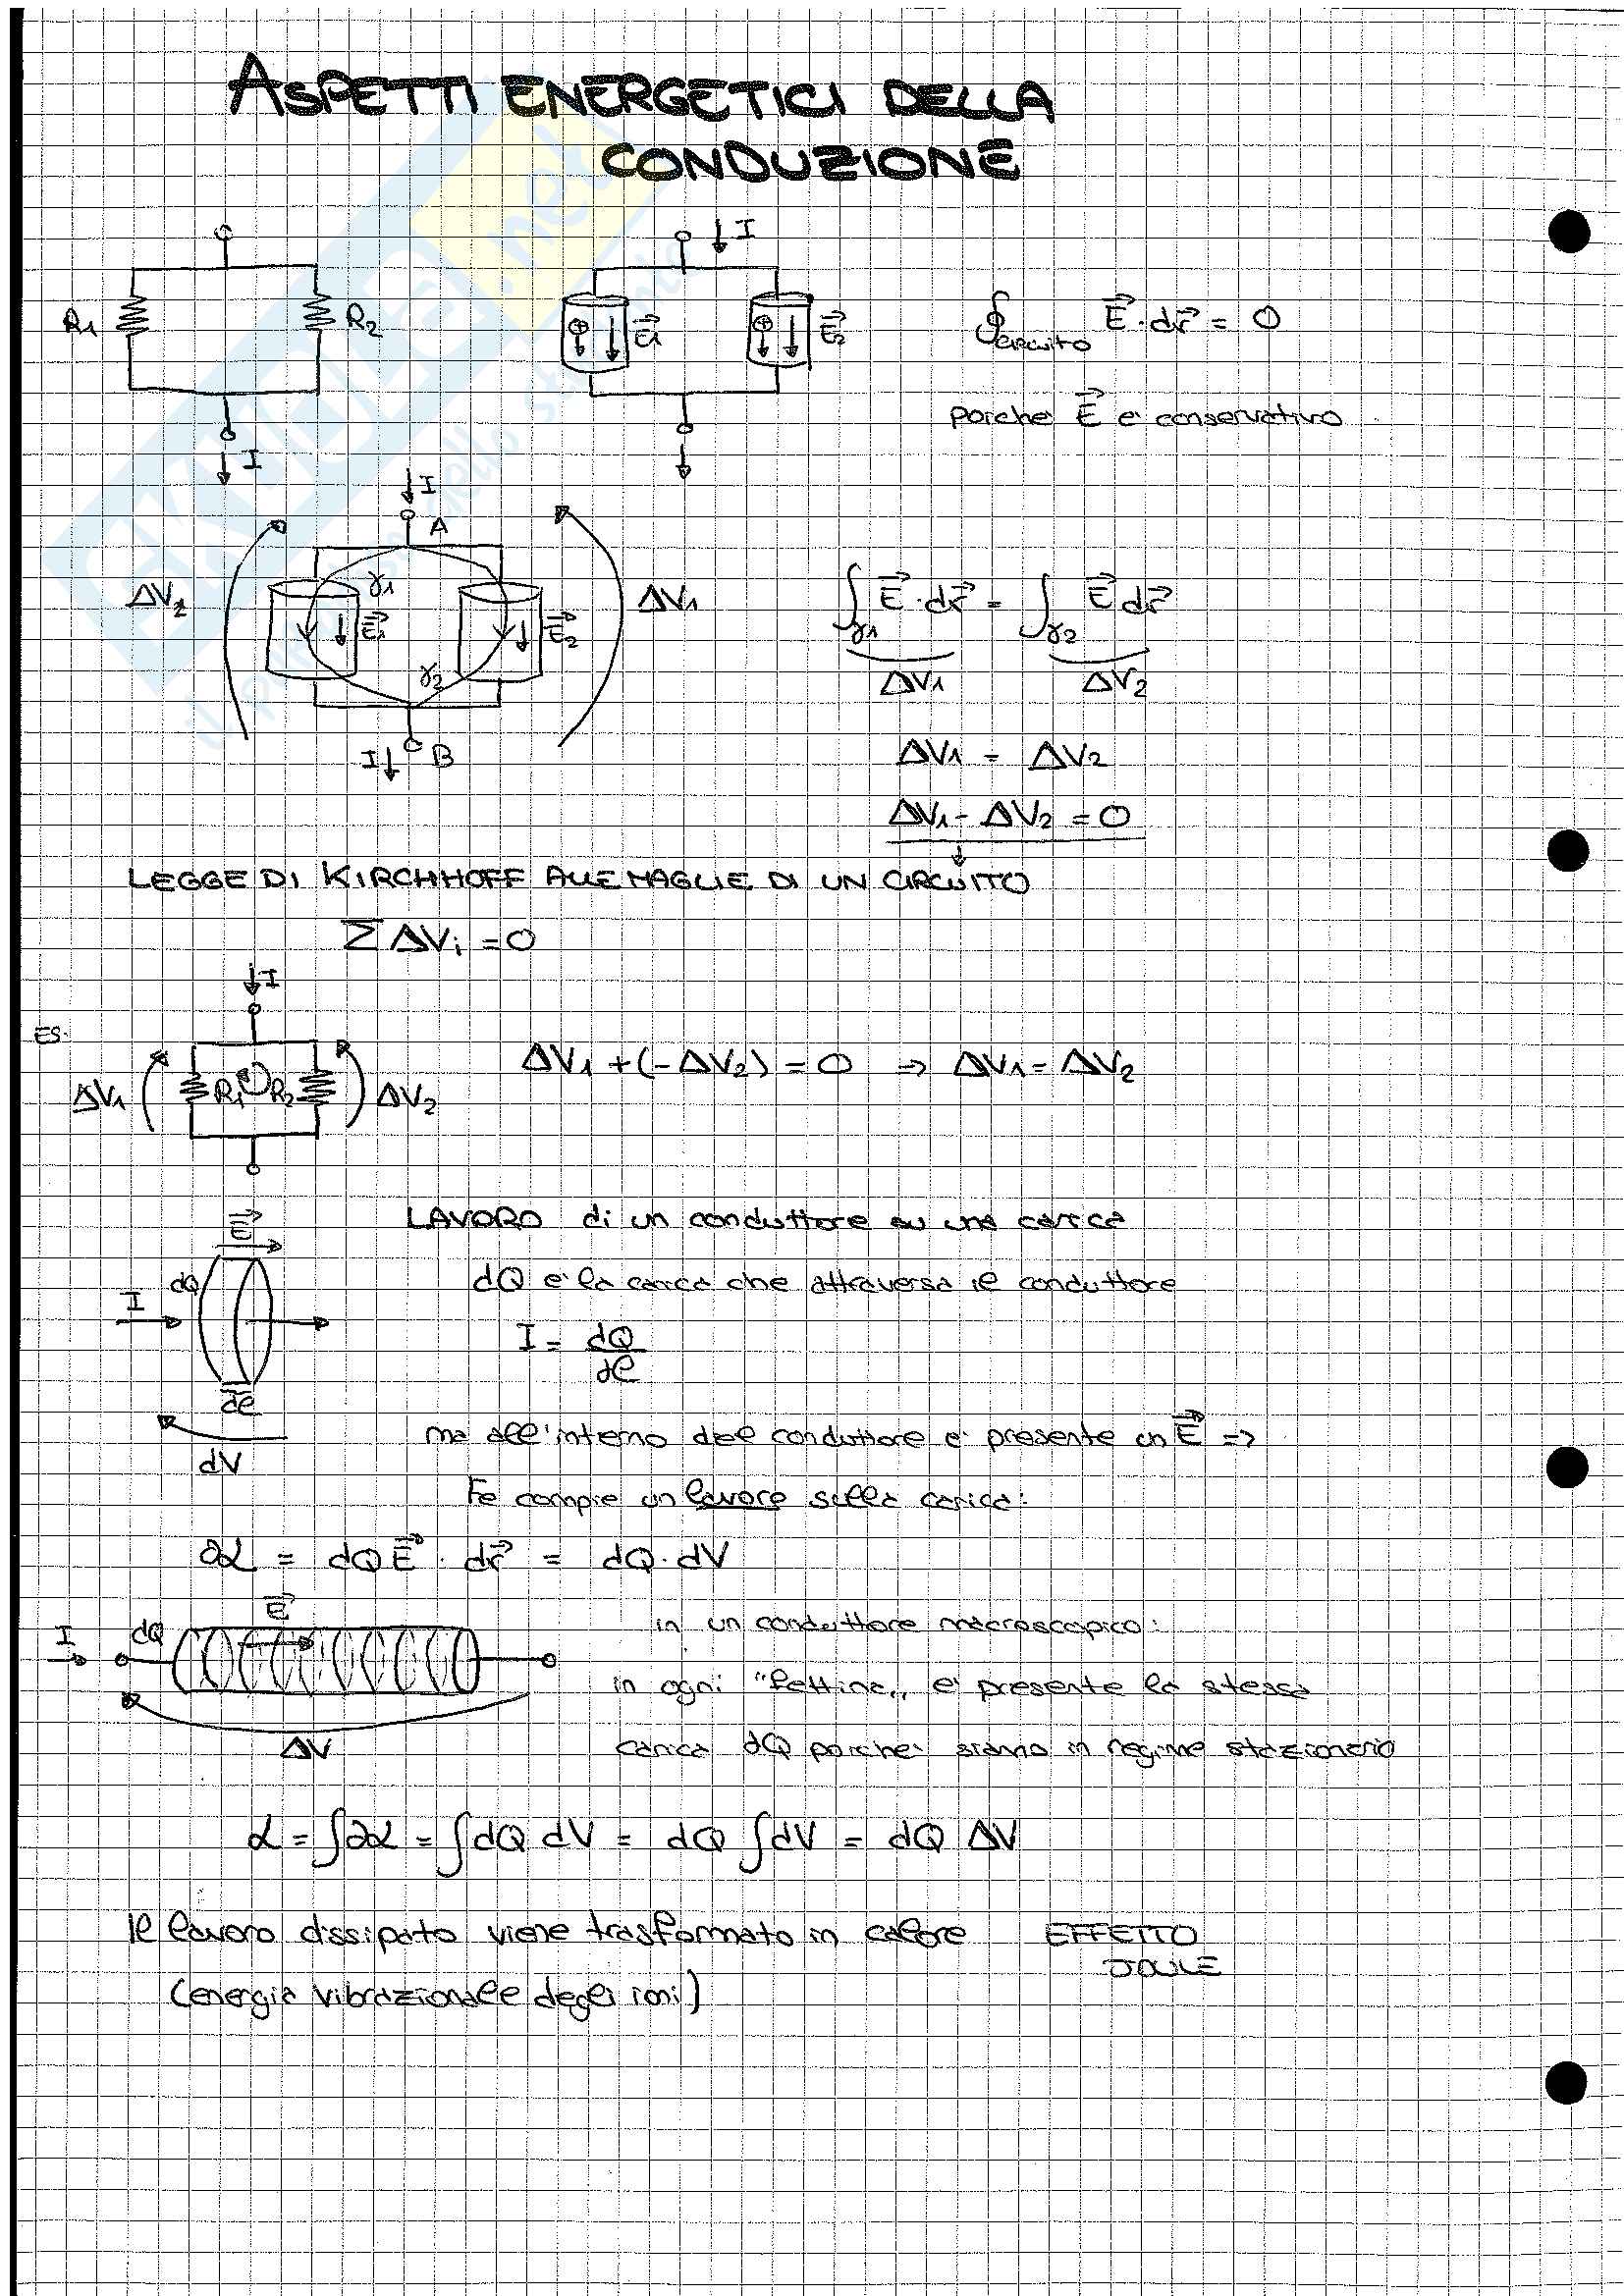 ASPETTI ENERGETICI DELLA
CONDUZIONE
I
R1 R2 E⃗1 E⃗2 ∮circuito E⃗ · dr⃗ = 0
perche E⃗ e' conservativo
I
I
A
ΔV2 γ1 E⃗1 E⃗2 ΔV1 ∫γ1 E⃗ · dr⃗ = ∫γ2 E⃗ dr⃗
γ2 ΔV1 ΔV2
I B ΔV1 = ΔV2
ΔV1 - ΔV2 = 0
LEGGE DI KIRCHHOFF ALLE MAGLIE DI UN CIRCUITO
Σ ΔVi = 0
I
ES.
ΔV1 R1 R2 ΔV2 ΔV1 + (-ΔV2) = 0 => ΔV1 = ΔV2
E⃗ LAVORO di un conduttore su una carica
dQ dQ e' la carica che attraversa il conduttore
I I = dQ/dl
dl
ma all'interno del conduttore e' presente un E⃗ =>
dV
Fe compie un lavoro sulla carica:
∂L = dQ E⃗ · dr⃗ = dQ · dV
I dQ E⃗ in un conduttore macroscopico:
in ogni "fettina" e' presente la stessa
ΔV carica dQ perche' siamo in regime stazionario
L = ∫∂L = ∫dQ dV = dQ ∫dV = dQ ΔV
il lavoro dissipato viene trasformato in calore EFFETTO
JOULE
(energia vibrazionale degli ioni)
SKUOLA.net